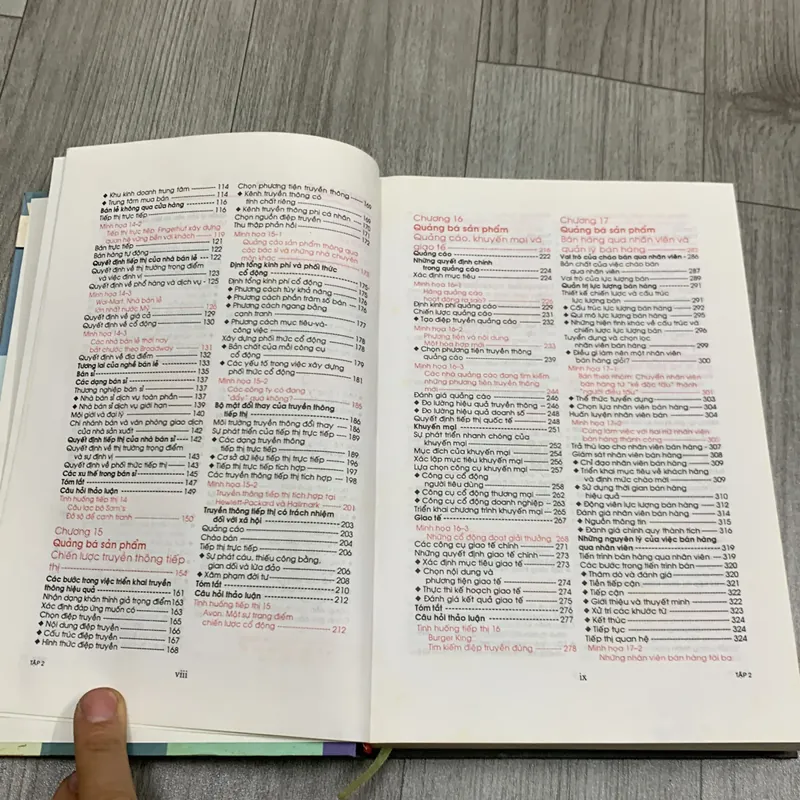 ◆ Khu kinh doanh trung tâm 114
◆ Trung tâm mua bán 116
Bán lẻ không qua cửa hàng 116
Tiếp thị trực tiếp 116
Minh họa 14-2
Tiếp thị trực tiếp: Fingerhut xây dựng
quan hệ vững bền với khách 119
Bán trực tiếp 121
Bán hàng tự động 121
Quyết định tiếp thị của nhà bán lẻ 122
Quyết định về thị trường trọng điểm
và việc định vị 123
Quyết định về phổ hàng và dịch vụ - 125
Minh họa 14-3
Wal-Mart: Nhà bán lẻ
lớn nhất nước Mỹ
Quyết định về giá cả 129
Quyết định về cổ động 130
Minh họa 14-3
Các nhà bán lẻ thời nay
bắt chước theo Broadway 131
Quyết định về địa điểm 133
Tương lai của nghề bán lẻ 133
Bán sỉ 135
Các dạng bán sỉ 137
Thương nghiệp bán sỉ 137
◆ Nhà bán sỉ dịch vụ toàn phần 137
◆ Nhà bán sỉ dịch vụ giới hạn 139
Môi giới và đại lý 140
Chi nhánh bán và văn phòng giao dịch
của nhà sản xuất 142
Quyết định tiếp thị của nhà bán sỉ 142
Quyết định về thị trường trọng điểm
và sự định vị 143
Quyết định về phối thức tiếp thị 143
Các xu thế trong bán sỉ 145
Tóm tắt 147
Câu hỏi thảo luận 149
Tình huống tiếp thị 14
Câu lạc bộ Sam's
Đồ sộ để cạnh tranh 150
Chương 15
Quảng bá sản phẩm
Chiến lược truyền thông tiếp
thị 154
Các bước trong việc triển khai truyền
thông hiệu quả 161
Nhận dạng khán thính giả trọng điểm 163
Xác định đáp ứng muốn có 163
Chọn điệp truyền 165
◆ Nội dung điệp truyền 166
◆ Cấu trúc điệp truyền 167
◆ Hình thức điệp truyền 168
Chọn phương tiện truyền thông 169
◆ Kênh truyền thông có
tính chất riêng
◆ Kênh truyền thông phi cá nhân
Chọn nguồn điệp truyền 171
Thu thập phản hồi 172
Minh họa 15-1
Quảng cáo sản phẩm thông qua
các bác sĩ và những chuyên
môn khác
Định tổng kinh phí và phối thức
cổ động 175
Định tổng kinh phí cổ động 175
◆ Phương cách tùy khả năng
◆ Phương cách phần trăm số bán
◆ Phương cách ngang bằng
cạnh tranh
◆ Phương cách mục tiêu-và-
công việc
Xây dựng phối thức cổ động
◆ Bản chất của mỗi công cụ
cổ động
◆ Các yếu tố trong việc xây dựng
phối thức cổ động 181
Minh họa 15-2
Các công ty có đang
"đẩy" quá không? 185
Bộ mặt đổi thay của truyền thông
tiếp thị 186
Môi trường truyền thông đổi thay 186
Sự phát triển của tiếp thị trực tiếp 189
◆ Các dạng truyền thông
tiếp thị trực tiếp 189
◆ Cơ sở dữ liệu tiếp thị trực tiếp 196
◆ Tiếp thị trực tiếp tích hợp 197
Các truyền thông tiếp thị tích hợp 198
Minh họa 15-2
Truyền thông tiếp thị tích hợp tại
Hewlett-Packard và Hallmark 201
Truyền thông tiếp thị có trách nhiệm
đối với xã hội 203
Quảng cáo 204
Chào bán 206
Tiếp thị trực tiếp 206
◆ Sự phát cáu, thiếu công bằng,
gian dối và lừa đảo 206
◆ Xâm phạm đời tư 208
Tóm tắt 210
Câu hỏi thảo luận 212
Tình huống tiếp thị 15
Avon: Một sự trang điểm
chiến lược cổ động 212
TẬP 2
viii
Chương 16
Quảng bá sản phẩm
Quảng cáo, khuyến mại và
giao tế 216
Quảng cáo 222
Những quyết định chính
trong quảng cáo 224
Xác định mục tiêu 224
Minh họa 16-1
Hãng quảng cáo
hoạt động ra sao?
Định kinh phí quảng cáo 229
Chiến lược quảng cáo 231
◆ Tạo điệp truyền quảng cáo 232
Minh họa 16-2
Phương tiện và nội dung
Một hòa hợp mới 233
◆ Chọn phương tiện truyền thông
quảng cáo 239
Minh họa 16-3
Các nhà quảng cáo đang tìm kiếm
những phương tiện truyền thông
mới 244
Đánh giá quảng cáo 246
◆ Đo lường hiệu quả truyền thông 246
◆ Đo lường hiệu quả doanh số 248
Quyết định tiếp thị quốc tế 248
Khuyến mại 251
Sự phát triển nhanh chóng của
khuyến mại 252
Mục đích của khuyến mại 254
Xác lập mục tiêu khuyến mại 256
Lựa chọn công cụ khuyến mại 257
◆ Công cụ cổ động
người tiêu dùng 258
◆ Công cụ cổ động thương mại 262
◆ Công cụ cổ động doanh nghiệp 263
Triển khai chương trình khuyến mại 265
Giao tế 267
Minh họa 16-3
Những cổ động đoạt giải thưởng 268
Các công cụ giao tế chính 271
Những quyết định giao tế chính 273
◆ Xác định mục tiêu giao tế 273
◆ Chọn nội dung và
phương tiện giao tế 274
◆ Thực thi kế hoạch giao tế 274
◆ Đánh giá kết quả giao tế 275
Tóm tắt 276
Câu hỏi thảo luận 277
Tình huống tiếp thị 16
Burger King
Tìm kiếm điệp truyền đúng 278
Chương 17
Quảng bá sản phẩm
Bán hàng qua nhân viên và
quản lý bán hàng 283
Vai trò của chào bán qua nhân viên 286
Bản chất của việc chào bán
qua nhân viên 287
Vai trò của lực lượng bán hàng 289
Quản trị lực lượng bán hàng 291
Thiết kế chiến lược và cấu trúc
lực lượng bán 291
◆ Cấu trúc lực lượng bán hàng 292
◆ Qui mô lực lượng bán hàng 295
◆ Những hiện tình khác về cấu trúc và
chiến lược lực lượng bán 296
Tuyển dụng và chọn lọc
nhân viên bán hàng 299
◆ Điều gì làm nên một nhân viên
bán hàng giỏi? 300
Minh họa 17-1
Bán theo nhóm: Chuyển nhân viên
bán hàng từ "kẻ độc tấu" thành
"người điều tấu" 301
◆ Thể thức tuyển dụng
◆ Chọn lựa nhân viên bán hàng 304
Huấn luyện nhân viên bán hàng 304
Minh họa 17-2
Cùng làm việc với hai nữ nhân viên
bán hàng thành công 305
Trả thù lao cho nhân viên bán hàng 307
Giám sát nhân viên bán hàng 309
◆ Chỉ đạo nhân viên bán hàng 309
◆ Triển khai mục tiêu về khách hàng
và định mức chào mời 309
◆ Sử dụng thời gian bán hàng
hiệu quả 310
◆ Động viên lực lượng bán hàng 312
Đánh giá nhân viên bán hàng 314
◆ Nguồn thông tin 315
◆ Đánh giá chính quy thành tích 316
Những nguyên lý của việc bán hàng
qua nhân viên 319
Tiến trình bán hàng qua nhân viên 320
Các bước trong tiến trình bán 320
◆ Thăm dò và đánh giá 320
◆ Tiền tiếp cận 321
◆ Tiếp cận 322
◆ Giới thiệu và thuyết minh 322
◆ Xử trí các khước từ 323
◆ Kết thúc 324
◆ Tiếp tục 324
Tiếp thị quan hệ 324
Minh họa 17-2
Những nhân viên bán hàng tài ba
ix
TẬP 2